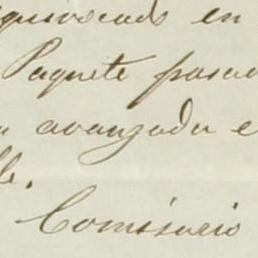 quivocado en
Paquete pasad
a avanzada e
lle.
Comisario